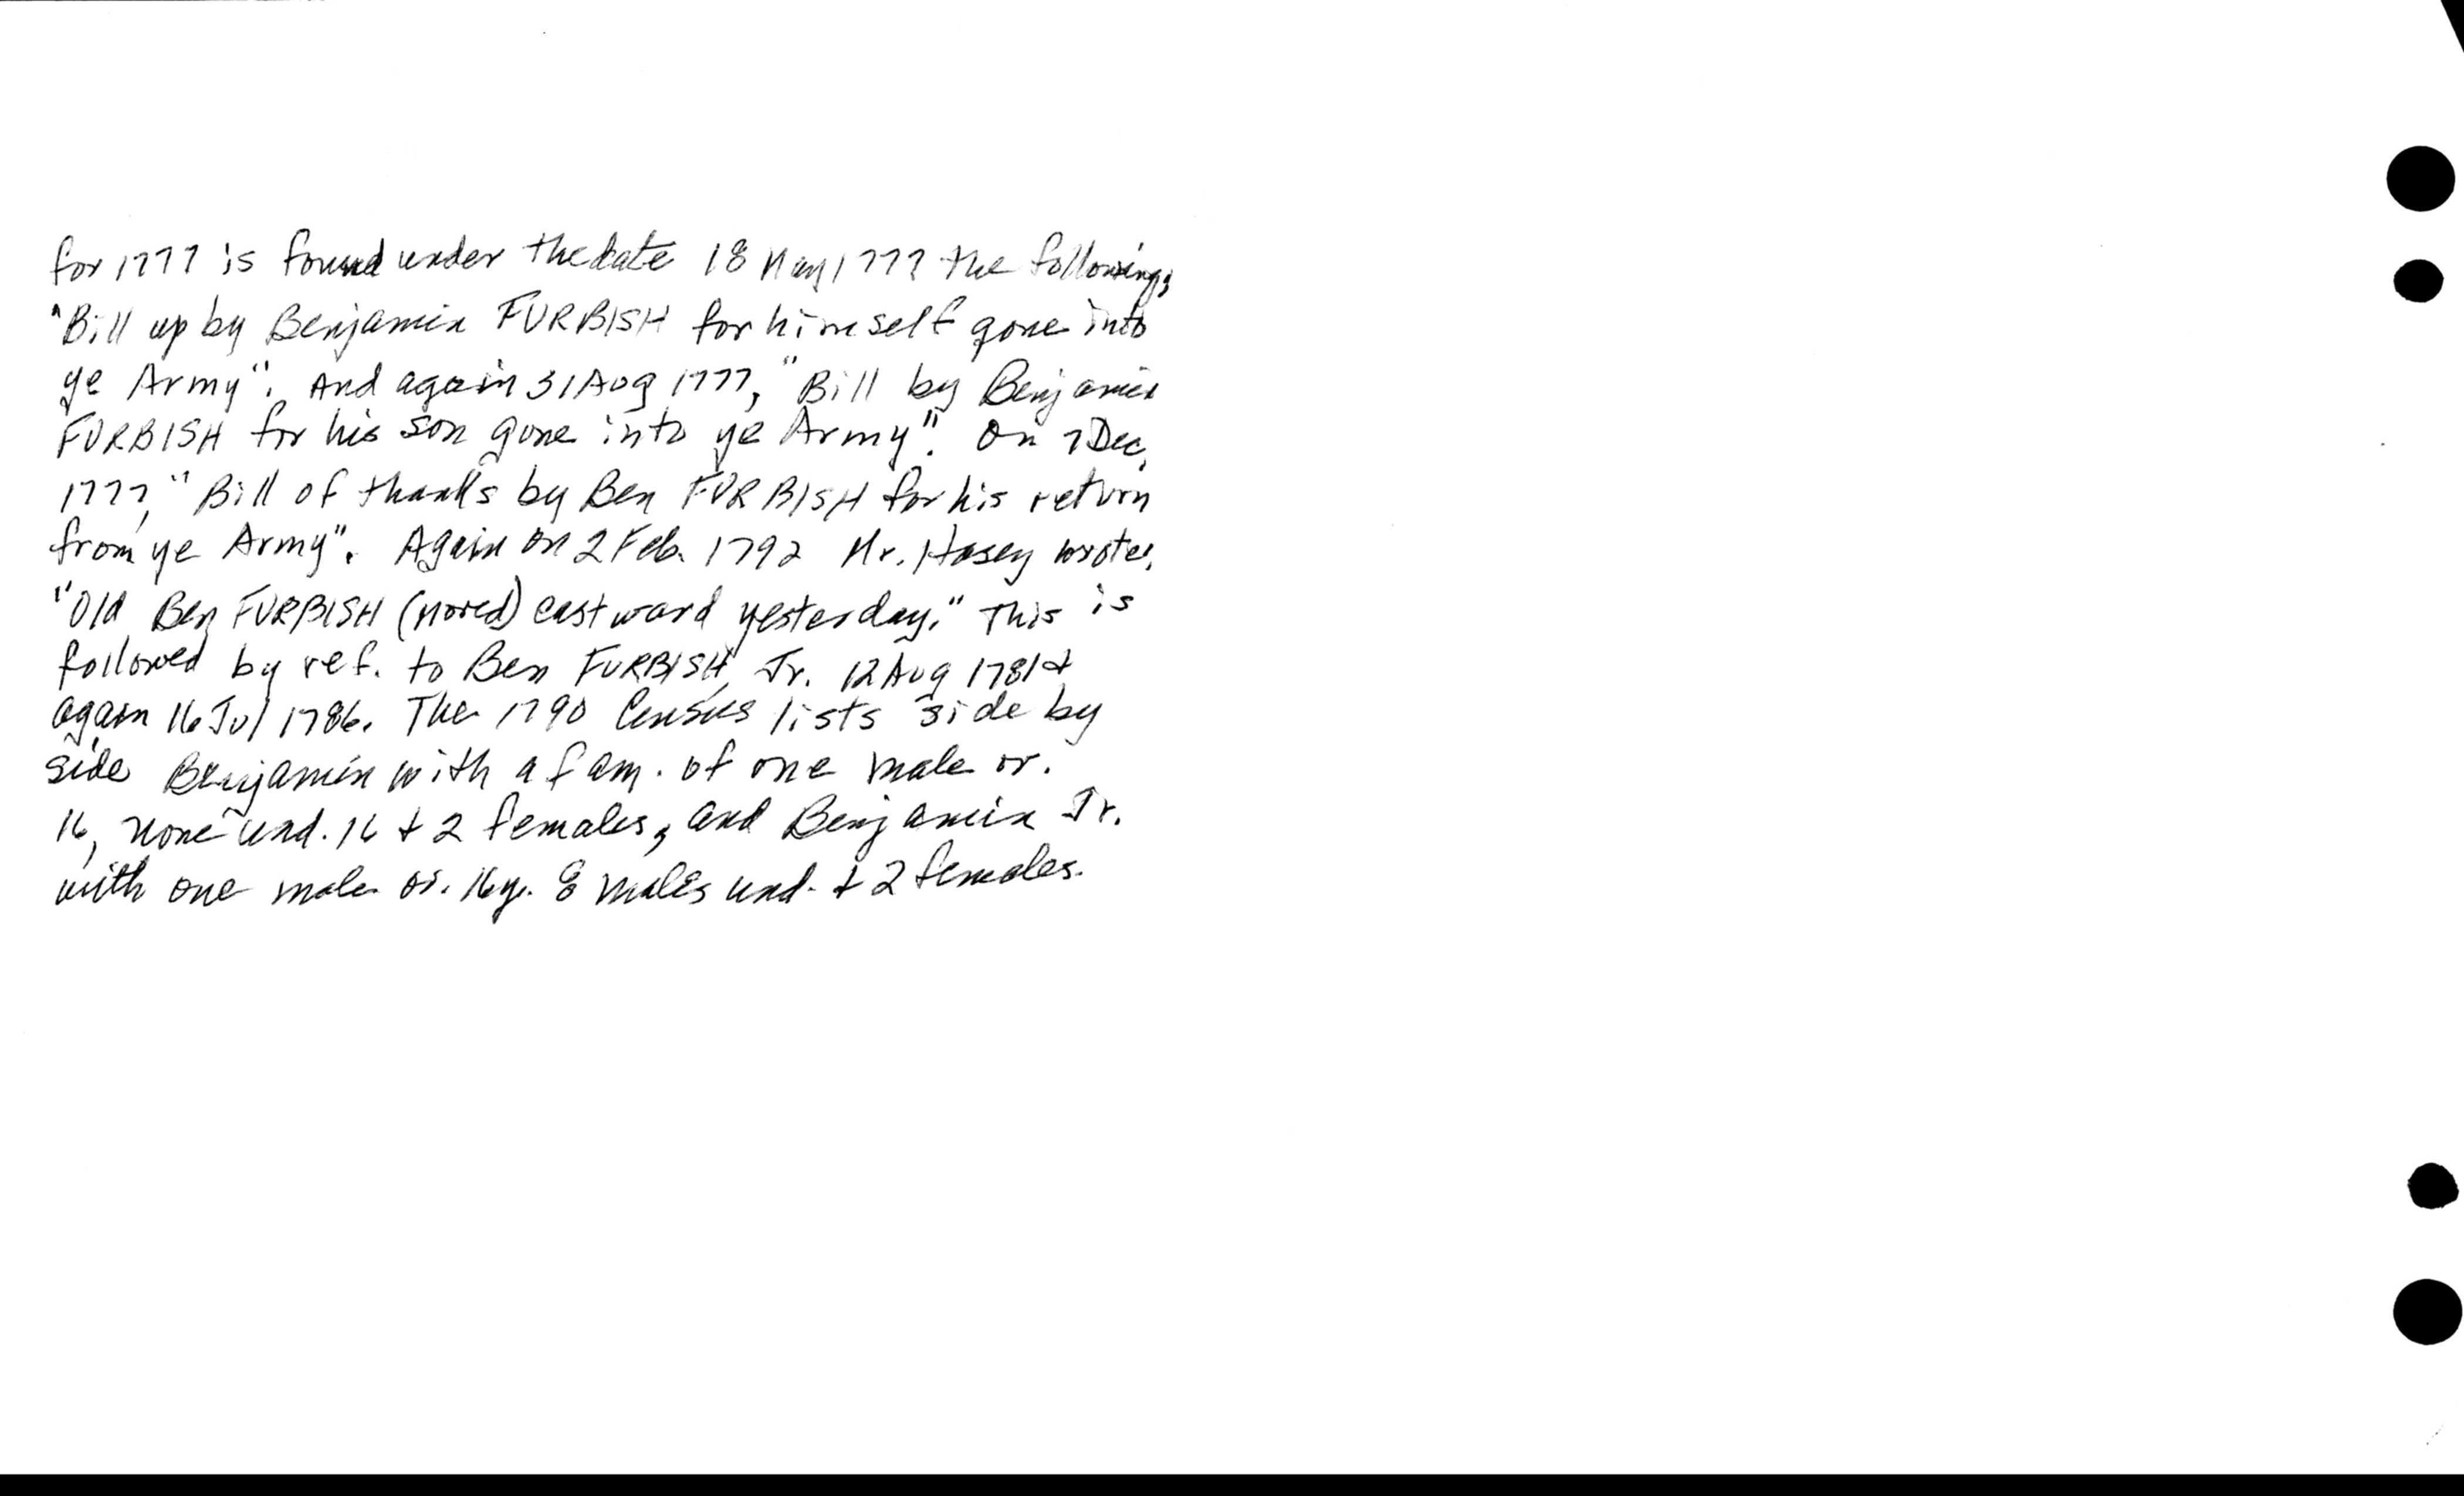 for 1777 is found under the date 18 May 1777 the following;
"Bill up by Benjamin FURBISH for himself gone into
ye Army". And again 31 Aug 1777, "Bill by Benjamin
FURBISH for his son gone into ye Army". On 7 Dec,
1777, "Bill of thanks by Ben FURBISH for his return
from ye Army". Again on 2 Feb. 1792 Mr. Hasey wrote,
"Old Ben FURBISH (moved) eastward yesterday." This is
followed by ref. to Ben FURBISH, Jr. 12 Aug 1781 &
again 16 Jul 1786. The 1790 Census lists side by
side Benjamin with a fam. of one male ov.
16, none und. 16 + 2 females, and Benjamin Jr.
with one male ov. 16 y. 8 males und. + 2 females.